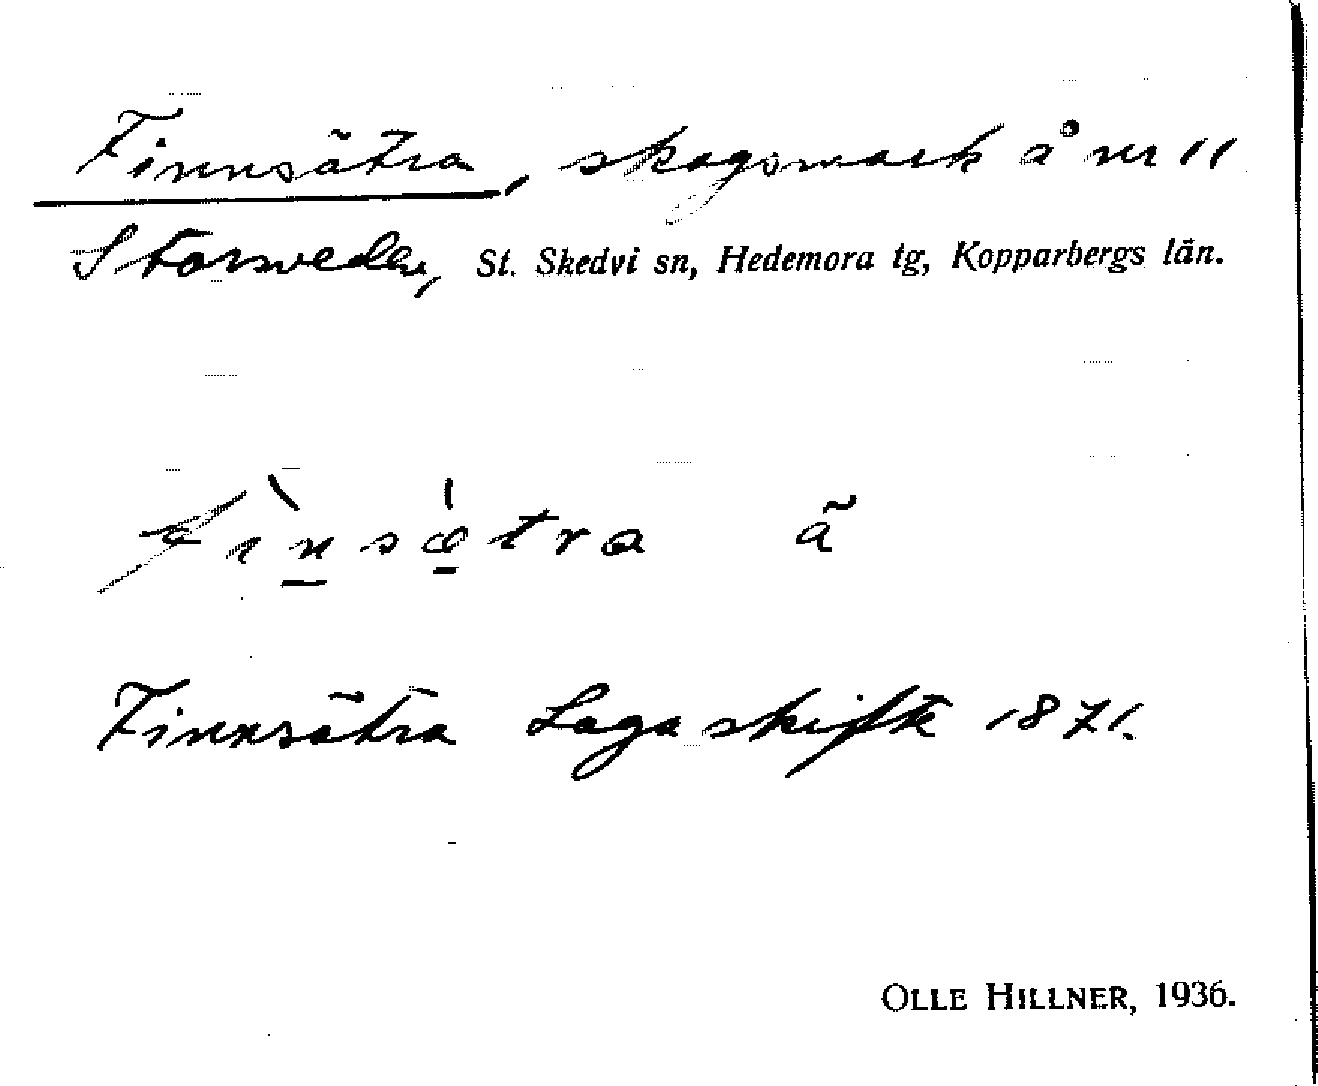 Finnsätra, skogsmark å nr 11
Storsveden, St. Skedvi sn, Hedemora tg, Kopparbergs län.
fìnsætra ã
Finnsätra Laga skifte 1871.
OLLE HILLNER, 1936.